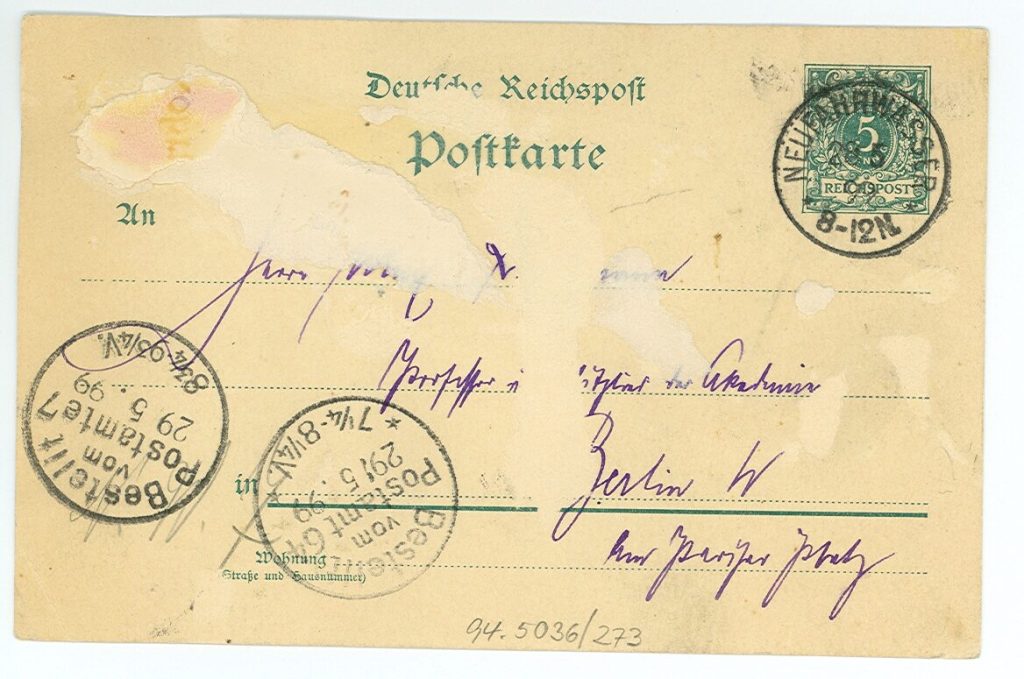 Deutsche Reichspost
Postkarte
5
REICHSPOST
NEUFAHRWASSER
28 5
99
8-12N.
An
Herrn
Professor u Mitglied der Akademie
Berlin W
Am Pariser Platz
in
Wohnung
(Straße und Hausnummer)
Bestellt
vom
Postamte 7
29 5. 99
8 3/4-9 3/4V.
Bestellt
vom
Postamt 64
29/5. 99
* 7 1/4-8 1/4V. *
94.5036/273